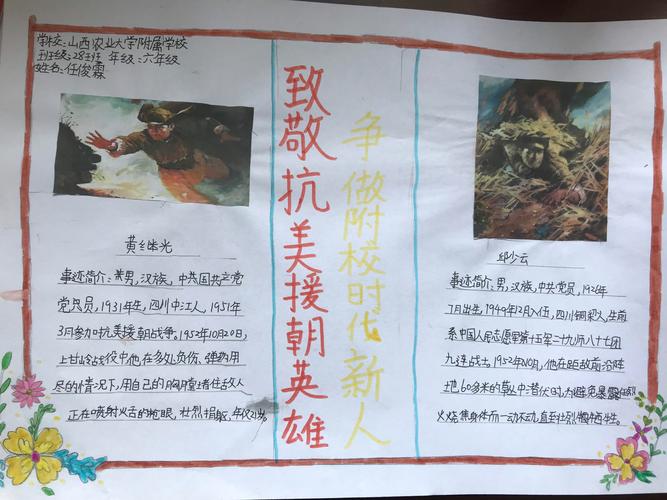 学校:山西农业大学附属学校
班级:28班 年级:六年级
姓名:任俊霖
致敬抗美援朝英雄
争做附校时代新人
黄继光
事迹简介:男,汉族,中共国共产党
党员,1931年生,四川中江人,1951年
3月参加抗美援朝战争。1952年10月20日,
上甘岭战役中他在多处负伤、弹药用
尽的情况下,用自己的胸膛堵住敌人
正在喷射火舌的枪眼,壮烈捐躯,年仅21岁。
邱少云
事迹简介:男,汉族,中共党员,1926年
7月出生,1949年12月入伍,四川铜梁人,生前
系中国人民志愿军第十五军二十九师八十七团
九连战士,1952年10月,他在距敌前沿阵
地60多米的草丛中潜伏时,为避免暴露任
火烧焦身体而一动不动,直至壮烈牺牲。